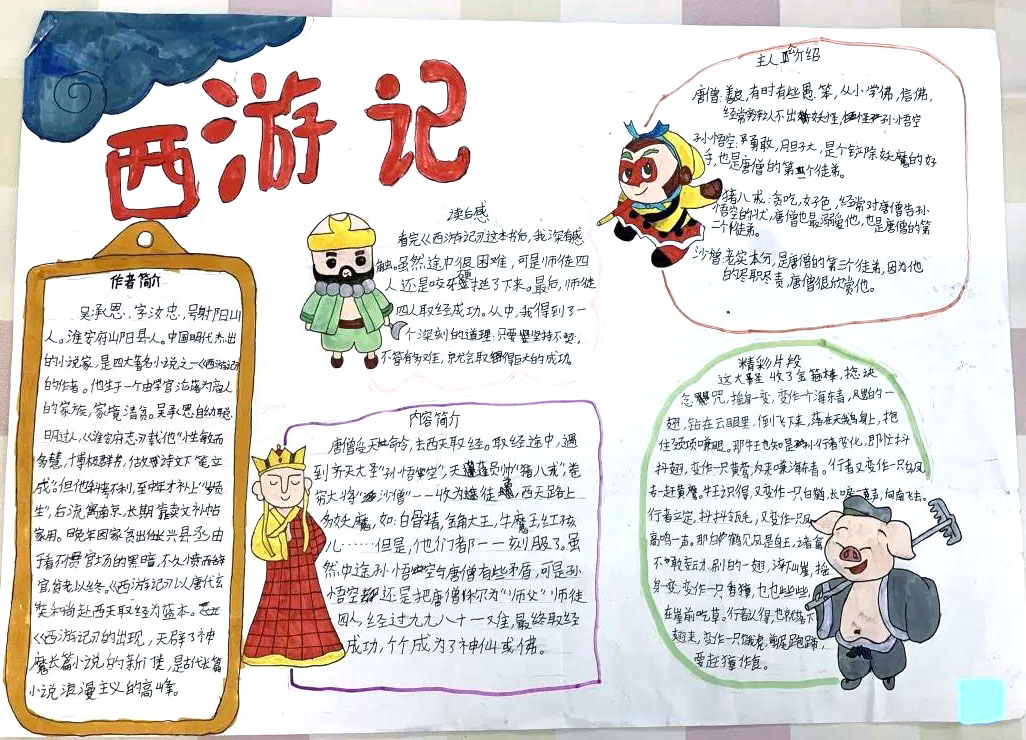 西游记
作者简介
吴承恩，字汝忠，号射阳山
人。淮安府山阳县人。中国明代杰出
的小说家，是四大著名小说之一《西游记》
的作者。他生于一个由学官沦落为商人
的家族，家境清贫。吴承恩自幼聪
明过人，《淮安府志》载他"性敏而
多慧，博极群书，
成。"但他科考不利，至中年才补上"岁贡
生"，后流寓南京，长期靠卖文补帖
家用。晚年因家贫出任长兴县丞，由
于看不惯官场的黑暗，不久愤而辞
官，以终。《西游记》以唐代玄
奘和尚赴西天取经为蓝本。
《西游记》的出现，开辟了神
魔长篇小说的新
小说浪漫主义的高峰。
读后感
看完《西游记》这本书后，我深有感
触。虽然途中很困难，可是师徒四
人还是咬牙坚挺了下来。最后，师徒
四人取经成功。从中，我得到了一
个深刻的道理：只要坚持不
不管有多难，就会取得巨大的成功。
内容简介
唐僧受天命令，去西天取经。取经途中，遇
到齐天大圣"孙悟空"，天蓬元帅"猪八戒"，卷
帘大将"沙僧"一一收为徒，西天路上
多妖魔，如：白骨精，金角大王，牛魔王，红孩
儿……但是，他们都一一刻服了。虽
然中途孙悟空与唐僧有些矛盾，可是孙
悟空还是把唐僧你尔为"师父"师徒
四人，经过九九八十一难，最终取经
成功，个个成为了神仙或佛。
主人公介绍
唐僧：善良，有时有些愚笨，从小学佛，信佛，
经常辨认不出妖怪，怪孙悟空
孙悟空：勇敢，胆子大，是个铲除妖魔的好
手，也是唐僧的第一个徒弟。
猪八戒：贪吃，好色，经常对唐僧告孙
悟空的状，唐僧也最溺爱他，也是唐僧的第
二个徒弟。
沙僧：老实本分，是唐僧的第三个徒弟，因为他
的尽职尽责，唐僧很欣赏他。
精彩片段
这大圣收了金箍棒，捻诀
念咒，摇身一变，变作一个海东青，飕的一
翅，钻在云眼里，倒飞下来，落在天鹅身上，抱
住颈项嗛眼。那牛王也知是孙行者变化，即忙抖
抖翅，变作一只黄鹰，返来嗛海东青。行者又变作一只乌凤，
专一赶黄鹰。牛王识得，又变作一只白鹤，长唳一声，向南飞去。
行者立定，抖抖翎毛，又变作一只凤
高鸣一声。那白鹤见凤是鸟王，诸禽
不敢妄动，刷的一翅，淬下山崖，摇
身一变，变作一只香獐，也些些，
在崖前吃草。行者认得，也就落下
翅来，变作一只饿虎，
要赶獐作食。